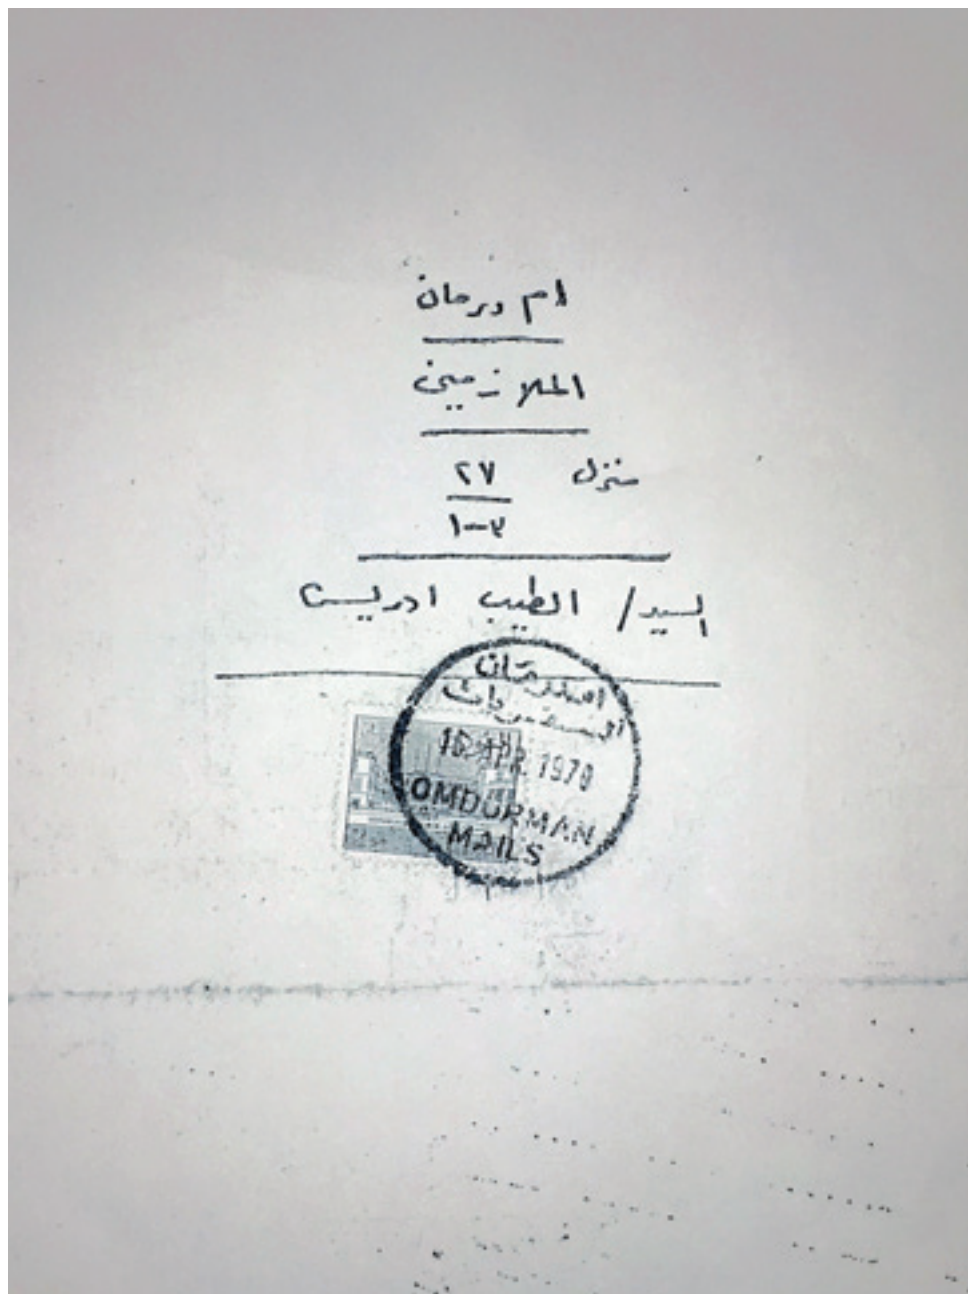 ام درمان
الملازمين
منزل ٢٧
١-٣
السيد/ الطيب ادريس
امدرمان
السفريات
APR 1970
OMDURMAN
MAILS